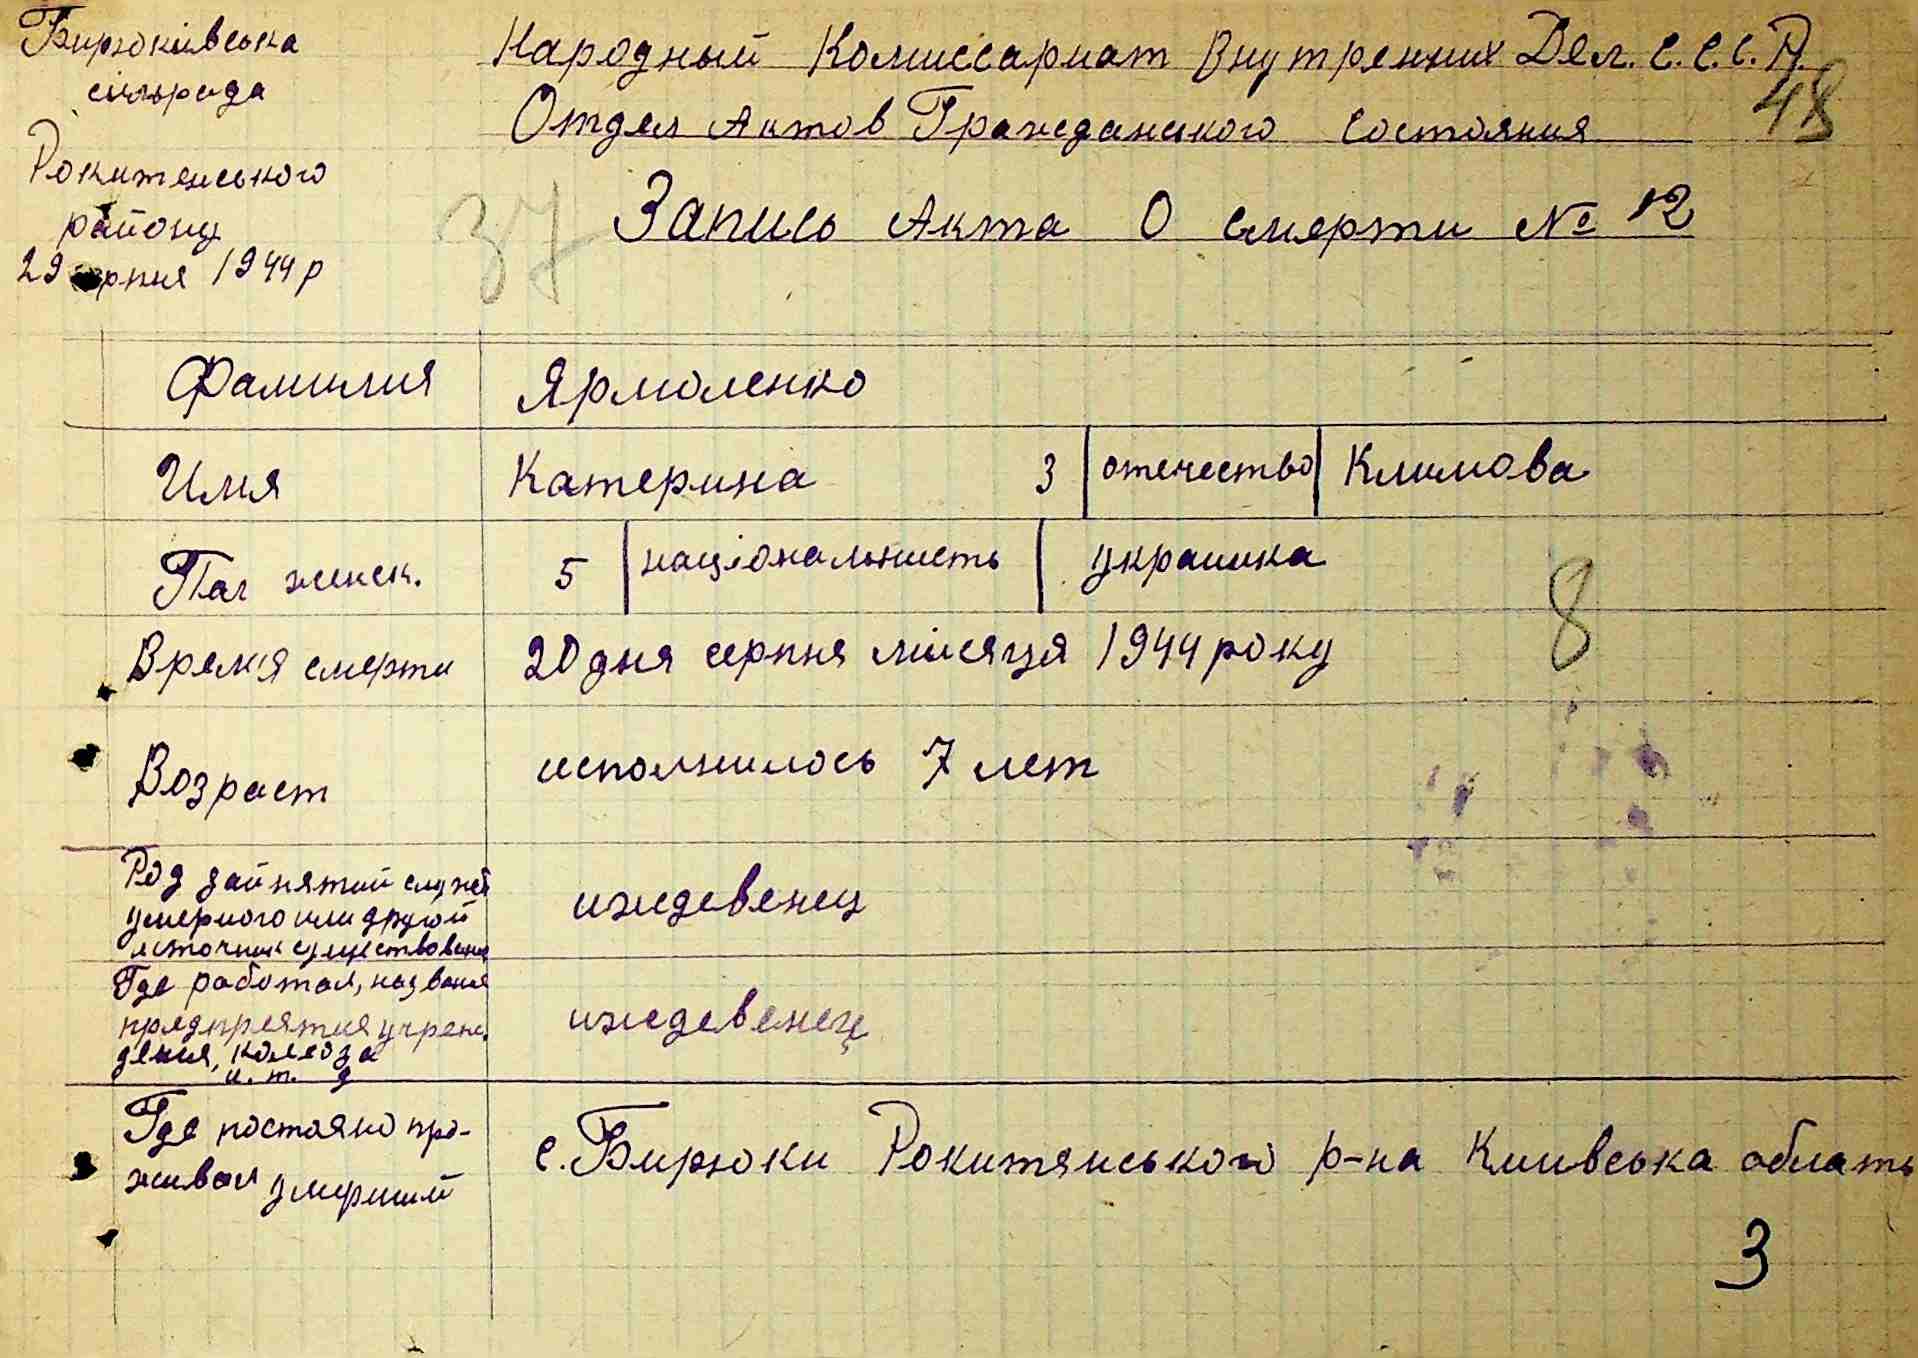 Бирюківська
сільрада
Рокитянського
району
29 серпня 1944 р
Народный Комиссариат Внутренних Дел. С.С.С.Р.
48
Отдел Актов Гражданского состояния
37
Запись Акта О смерти № 12
Фамилия Ярмоленко
Имя Катерина 3 отечество Климова
Пол женск. 5 національність украинка
8
Время смерти 20 дня серпня місяця 1944 року
Возраст исполнилось 7 лет
Род зайнятий служб
умерщого или другой
источник существования
иждевенец
Где работал, названия
предприятия учреж.
дения, колхоза
и. т. д
иждевенец
Где постояно про-
живал умерший
с. Бирюки Рокитянського р-на Киивська область
3